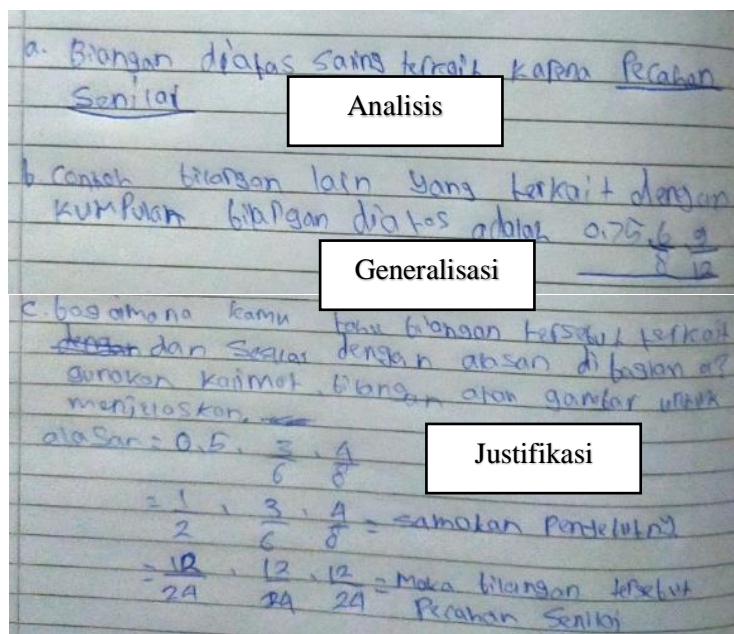 a. Biangan diatas saling terkait karena Pecahan
Senilai
Analisis
b. Contoh bilangan lain yang terkait dengan
kumpulan bilangan diatas adalah 0,75, 6/8, 9/12
Generalisasi
c. bagaimana kamu tahu bilangan tersebut terkait
dengan dan sesuai dengan alasan di bagian a?
gunakan kalimat, bilangan atau gambar untuk
menjelaskan.
alasan = 0,5, 3/6, 4/8
Justifikasi
= 1/2, 3/6, 4/8 = samakan penyebutnya
= 12/24, 12/24, 12/24 = Maka bilangan tersebut
Pecahan Senilai